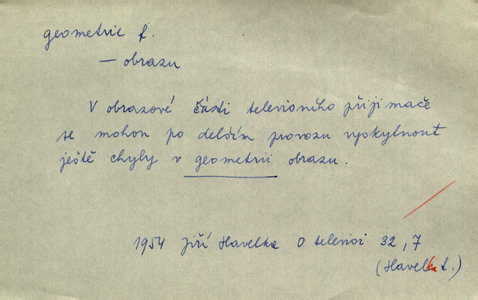 geometrie f.
— obrazu
V obrazové části televisního přijimače
se mohou po delším provozu vyskytnout
ještě chyby v geometrii obrazu.
1954 Jiří Havelka O televisi 32,7
(Havelka L.)